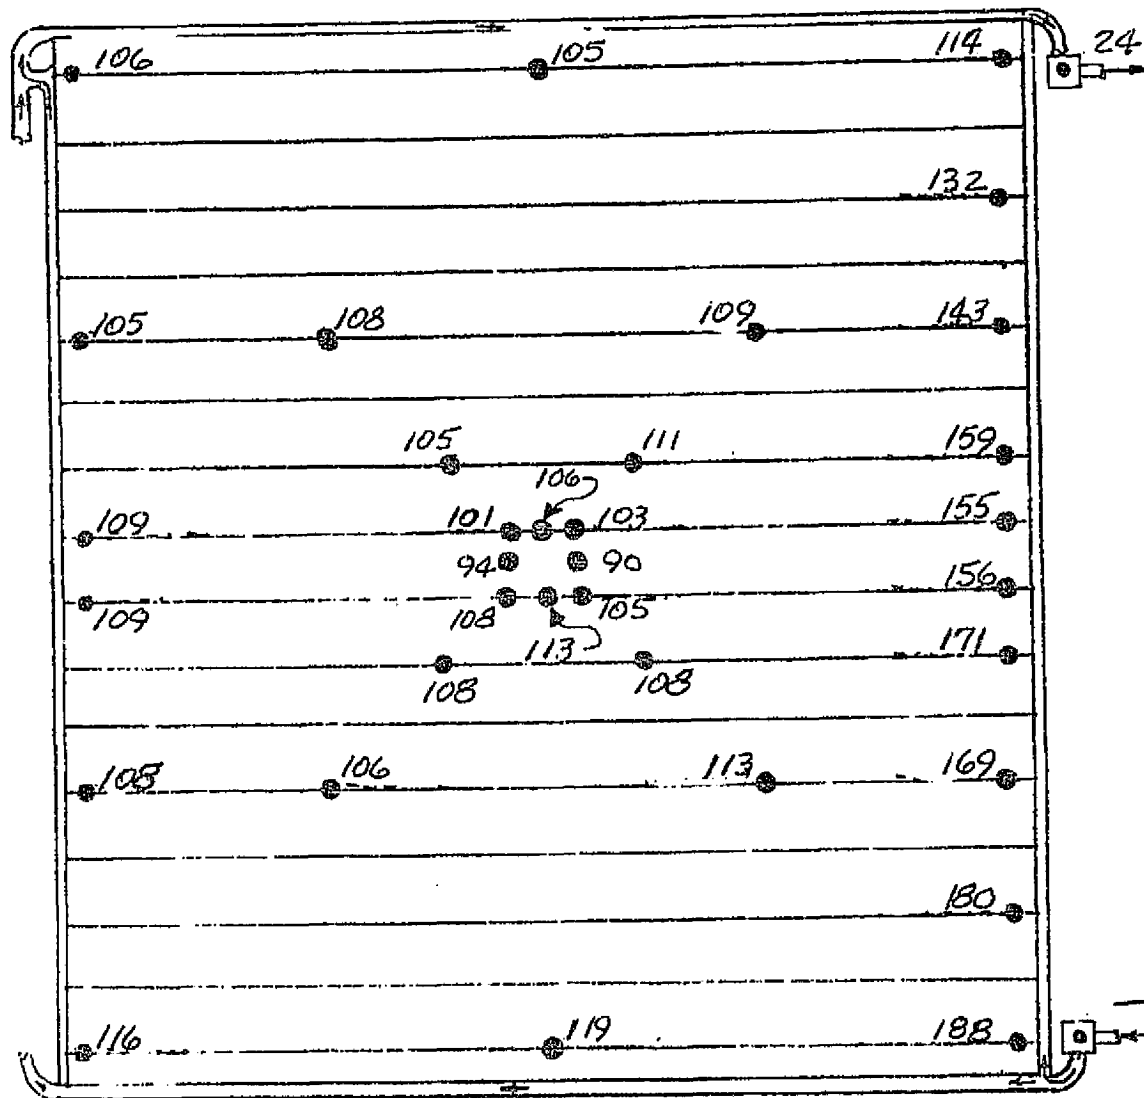 106 105 114 24
132
105 108 109 143
105 111 159
106
101 103 155
109
94 90
156
109 108 105
113 171
108 108
108 106 113 169
180
116 119 188